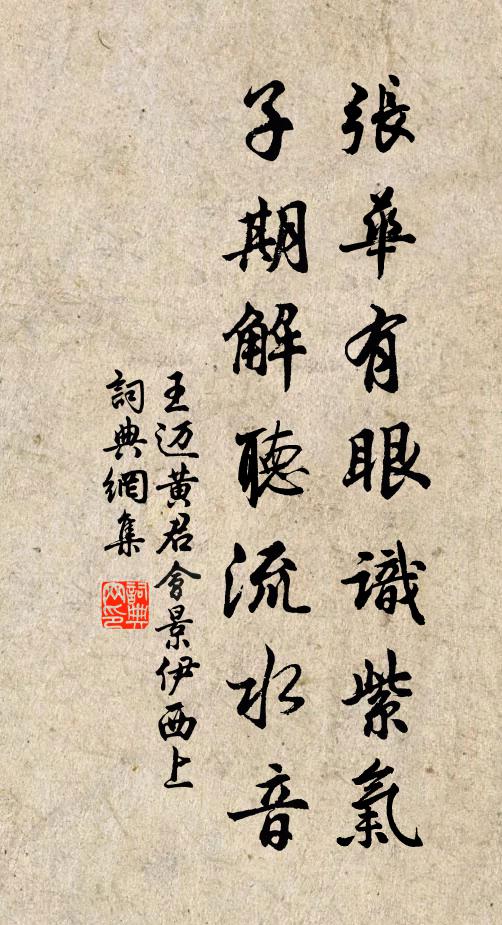 張華有眼識紫氣
子期解聽流水音
王迈黄君會景伊西上
詞典網集
詞典
网印